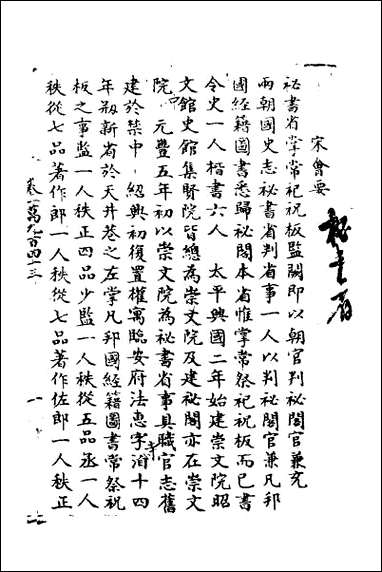 宋會要
秘書省
祕書省掌常祀祝板監闕即以朝官判祕閣官兼充
兩朝國史志祕書省判省事一人以判祕閣官兼凡邦
國經籍圖書悉歸祕閣本省惟掌常祭祀祝板而已書
令史一人楷書六人 太平興國二年始建崇文院昭
文館史館集賢院皆總為崇文院及建祕閣亦在崇文
院 元豐五年初以崇文院為祕書省事具職官志舊
建於禁中 紹興初復置權寓臨安府法惠寺 十四
年剏新省於天井巷之左掌凡邦國經籍圖書常祭祝
板之事監一人秩正四品少監一人秩從五品丞一人
秩從七品著作郎一人秩從七品著作佐郎一人秩正
卷一萬九百四十三
一